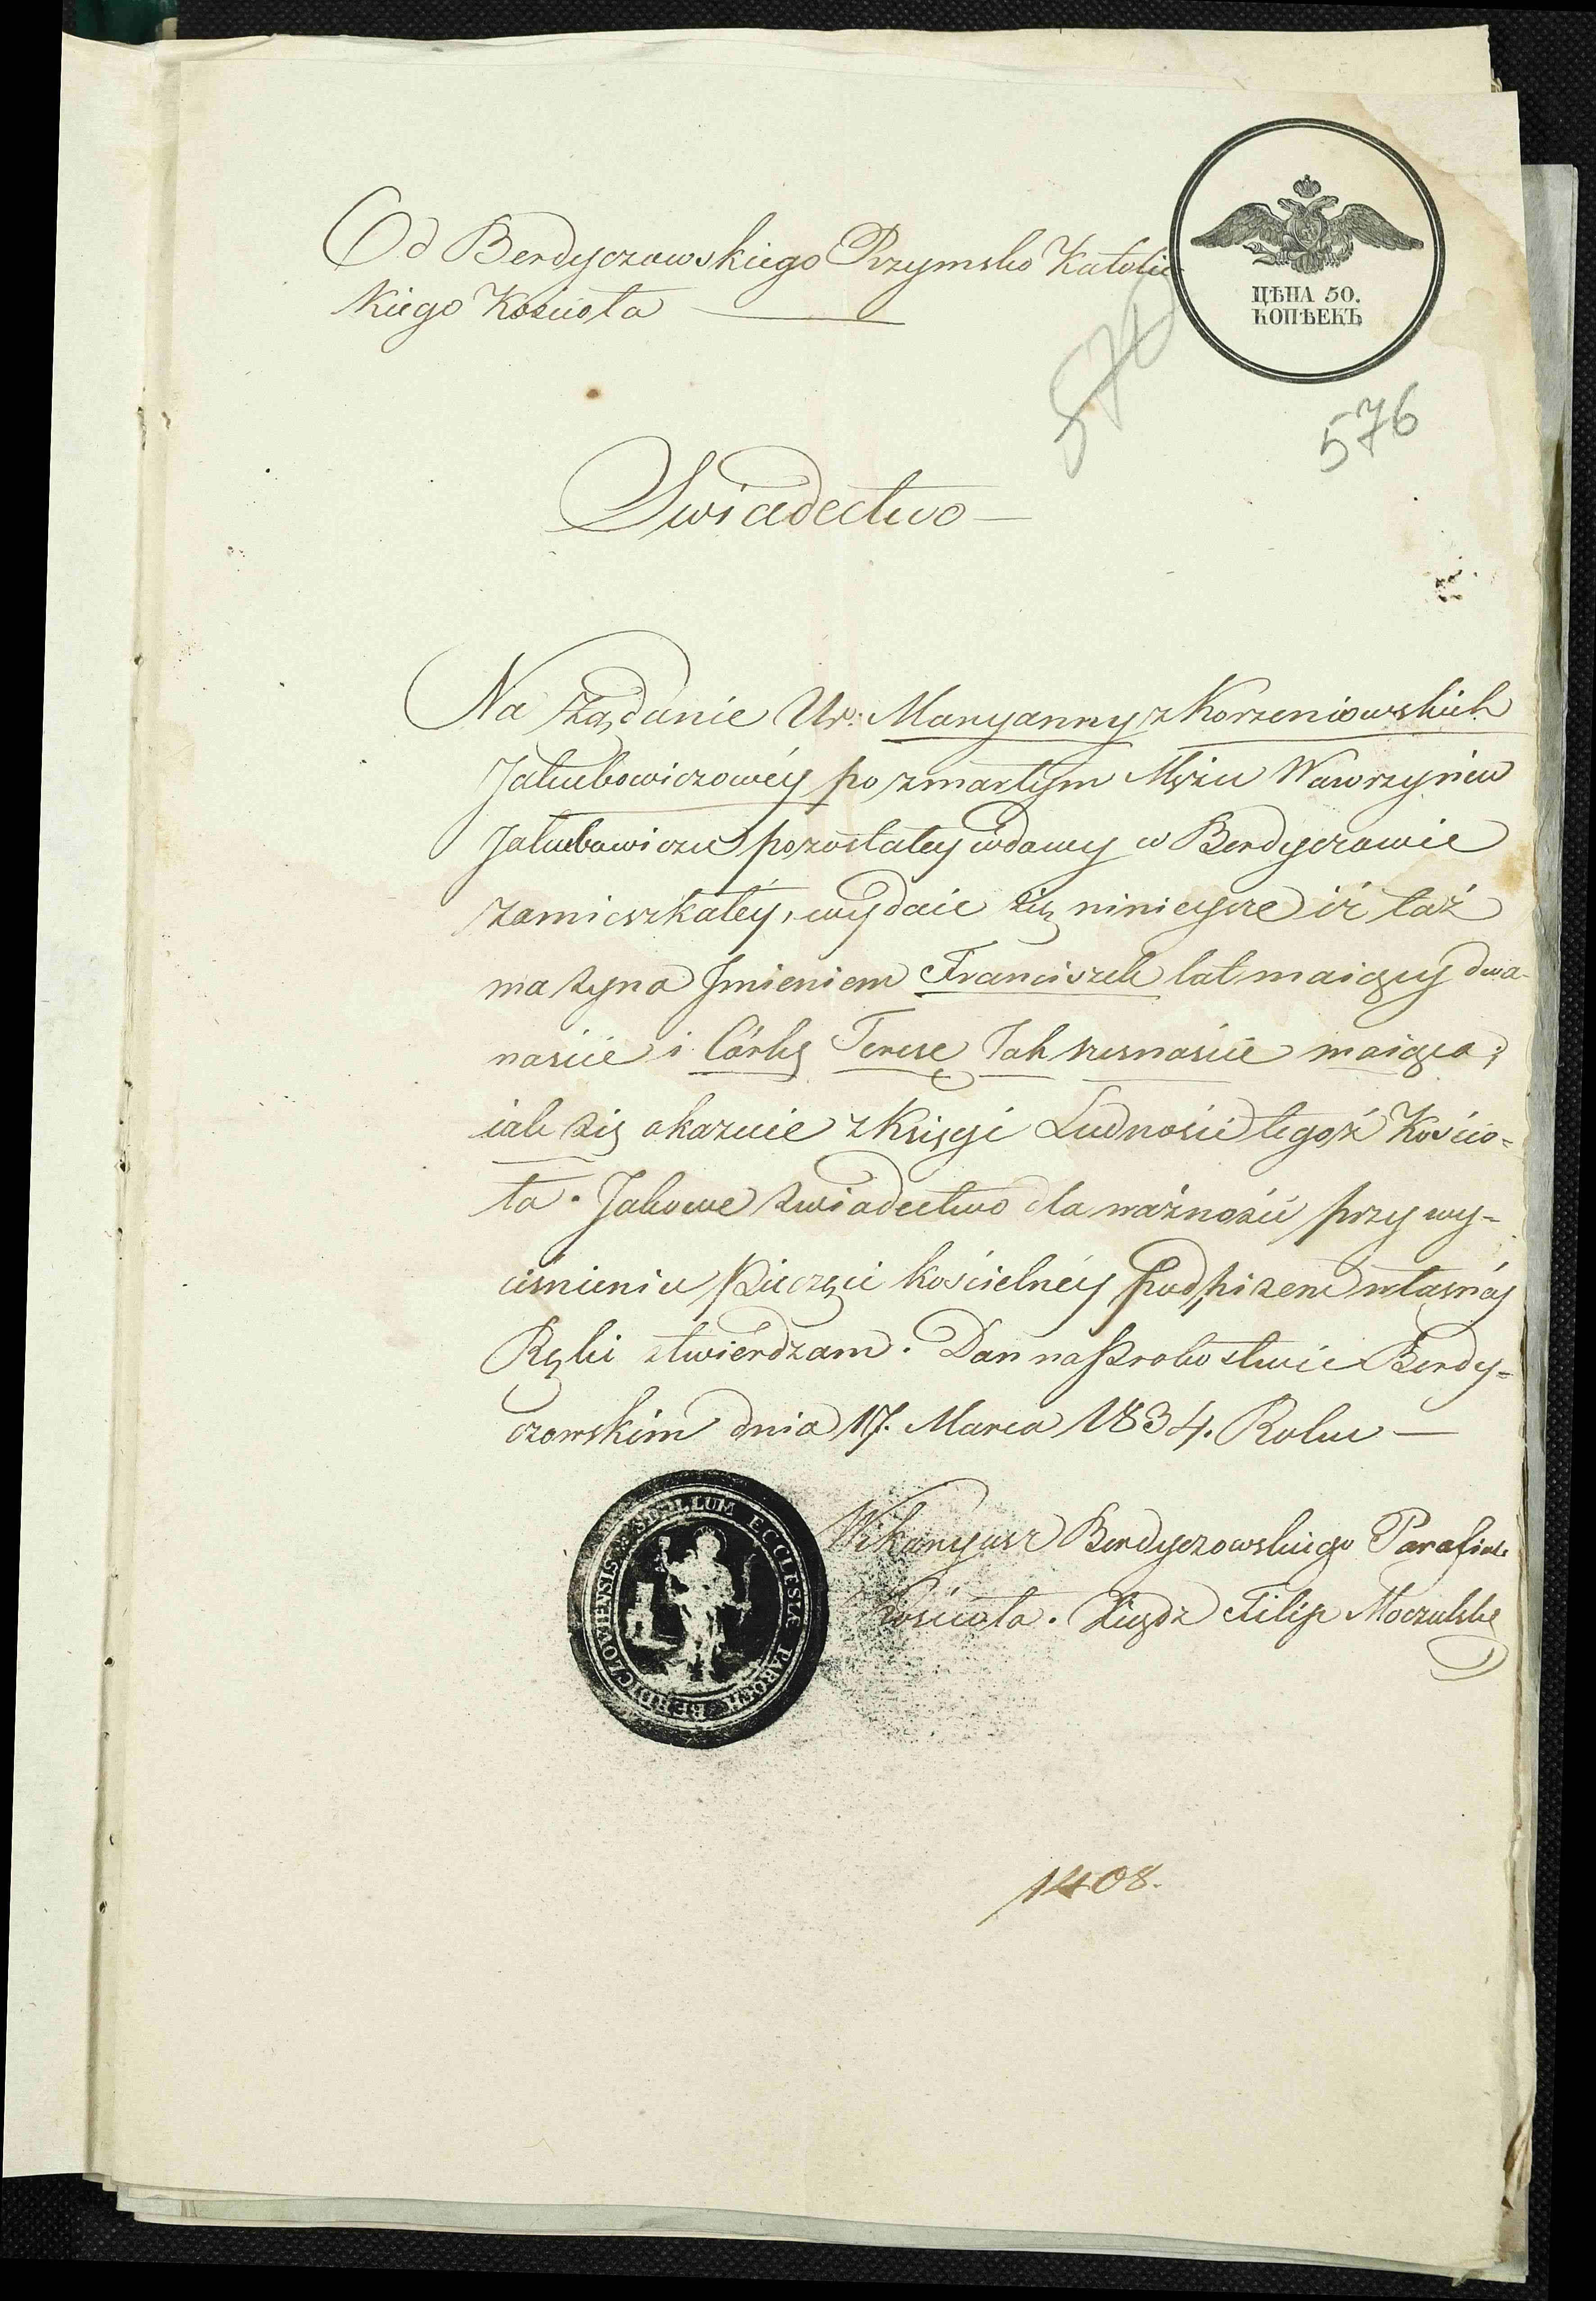 Od Berdyczowskiego Rzymsko Katolic-
kiego Kościoła
ЦѢНА 50.
КОПѢЕКЪ
576
576
Swiadectwo
Na Żądanie Ur: Maryanny z Korzeniowskich
Jakubowiczowéy po zmarłym Mężu Wawrzyńcu
Jakubowiczu pozostałey wdowy w Berdyczowie
zamieszkałéy, wydaie się ninieysze iż taż
ma syna Jmieniem Franciszek lat maiący dwa-
naście i Córkę Teresę lat szesnaście maiąca;
iak się okazuie z Księgi Ludności tegoż Kościo-
ła. Jakowe Swiadectwo dla ważności przy wy-
ciśnieniu Pieczęci kościelnéy podpisem własnéy
Ręki stwierdzam. Dan na Probostwie Berdy-
czowskim dnia 17. Marca 1834. Roku
Wikaryusz Berdyczowskiego Parafial:
Kościoła. Xiądz Filip Moczulski
SIGILLUM ECCLESIÆ PAROCH BERDICZOVIENSIS
1408.